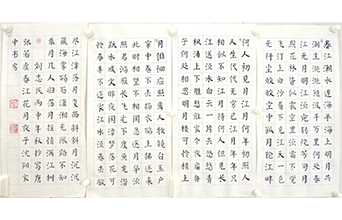 春江潮水连海平海上明月共
潮生滟滟随波千万里何处春
江无月明江流宛转绕芳甸月
照花林皆似霰空里流霜不觉
飞汀上白沙看不见江天一色
无纤尘皎皎空中孤月轮江畔
何人初见月江月何年初照人
人生代代无穷已江月年年只
相似不知江月待何人但见长
江送流水白云一片去悠悠青
枫浦上不胜愁谁家今夜扁舟
子何处相思明月楼可怜楼上
月徘徊应照离人妆镜台玉户
帘中卷不去捣衣砧上拂还来
此时相望不相闻愿逐月华流
照君鸿雁长飞光不度鱼龙潜
跃水成文昨夜闲潭梦落花可
怜春半不还家江水流春去欲
尽江潭落月复西斜斜月沉沉
藏海雾碣石潇湘无限路不知
乘月几人归落月摇情满江树
丙申年秋抄写唐
张若虚春江花月夜于沈阳寓
中书房